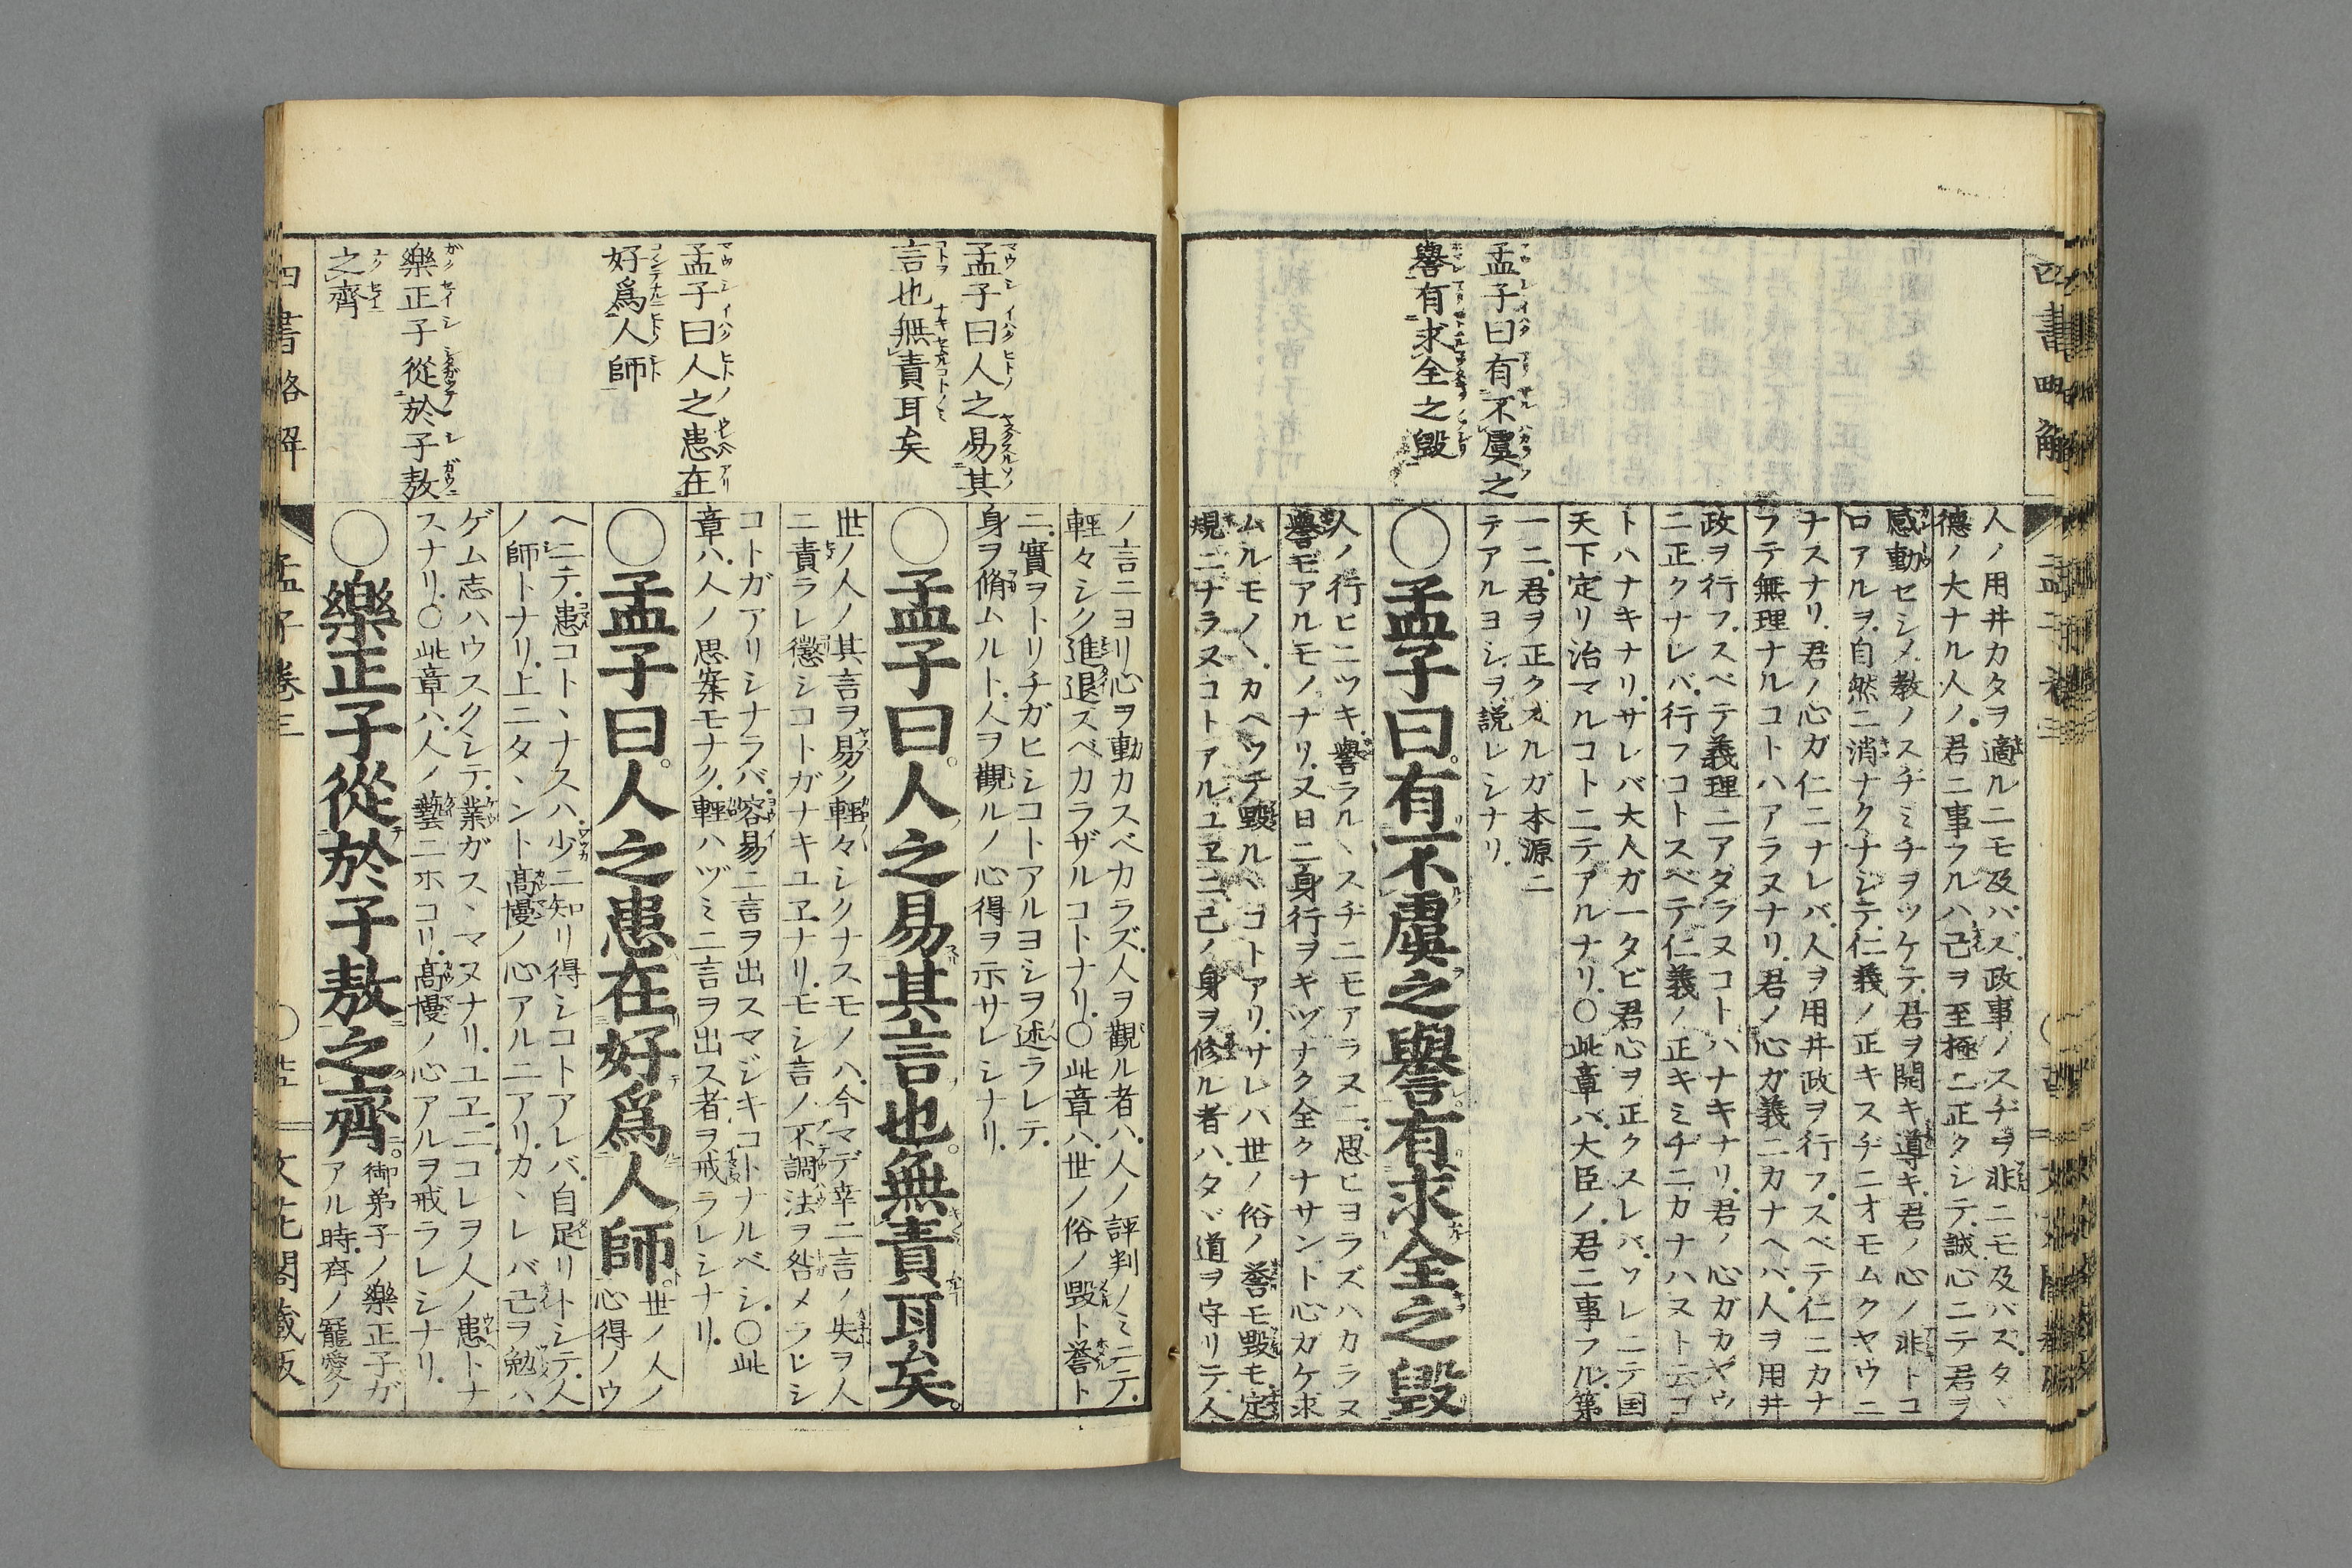 四書略解
孟子曰有不虞之
譽有求全之毀
人ノ用井カタヲ適ルニモ及バズ政事ノスヂヲ非ニモ及バズタヾ
德ノ大ナル人ノ君ニ事フルハ己ヲ至極ニ正クシテ誠心ニテ君ヲ
感動セシメ教ノスヂミチヲツケテ君ヲ開キ導キ君ノ心ノ非トコ
ロアルヲ自然ニ消ナクナシテ仁義ノ正キスヂニオモムクヤウニ
ナスナリ君ノ心ガ仁ニナレバ人ヲ用井政ヲ行フスベテ仁ニカナ
フテ無理ナルコトハアラヌナリ君ノ心ガ義ニカナヘバ人ヲ用井
政ヲ行フスベテ義理ニアタラヌコトハナキナリ君ノ心ガカヤウ
ニ正クナレバ行フコトスベテ仁義ノ正キミチニカナハヌト云コ
トハナキナリサレバ大人ガ一タビ君心ヲ正クスレバソレニテ国
天下定リ治マルコトニテアルナリ〇此章ハ大臣ノ君ニ事フル第
一ニ君ヲ正クスルガ本源ニ
テアルヨシヲ説レシナリ
〇孟子曰有不虞之譽有求全之毀
人ノ行ヒニツキ譽ラルヽスヂニモアラヌニ思ヒヨラズハカラヌ
譽モアルモノナリ又日ニ身行ヲキヅナク全クナサント心カケ求
ムルモノヽカヘツテ毀ルヽコトアリサレハ世ノ俗ノ誉モ毀モ定
規ニナラヌコトアルユヱニ己ノ身ヲ修ル者ハタヾ道ヲ守リテ人
孟子曰人之易其
言也無責耳矣
孟子曰人之患在
好爲人師
樂正子從於子敖
之齊
ノ言ニヨリ心ヲ動カスベカラズ人ヲ觀ル者ハ人ノ評判ノミニテ
輕々シク進退スベカラザルコトナリ〇此章ハ世ノ俗ノ毀ト誉ト
ニ實ヲトリチガヒシコトアルヨシヲ述ラレテ
身ヲ脩ムルト人ヲ觀ルノ心得ヲ示サレシナリ
〇孟子曰人之易其言也無責耳矣
世ノ人ノ其言ヲ易ク輕々シクナスモノハ今マデ幸ニ言ノ失ヲ人
ニ責ラレ懲シコトガナキユヱナリモシ言ノ不調法ヲ咎メラレシ
コトガアリシナラバ容易ニ言ヲ出スマジキコトナルベシ〇此
章ハ人ノ思案モナク輕ハヅミニ言ヲ出ス者ヲ戒ラレシナリ
〇孟子曰人之患在好爲人師世ノ人ノ
心得ノウ
ヘニテ患コトヽナスハ少ニ知リ得シコトアレバ自足リトシテ人
ノ師トナリ上ニタヽント髙慢ノ心アルニアリカヽレバ己ヲ勉ハ
ゲム志ハウスクシテ業ガスヽマヌナリユヱニコレヲ人ノ患トナ
スナリ〇此章ハ人ノ藝ニホコリ髙慢ノ心アルヲ戒ラレシナリ
〇樂正子從於子敖之齊御弟子ノ樂正子ガ
アル時齊ノ寵愛ノ
四書略解
孟子卷三
文花閣藏版